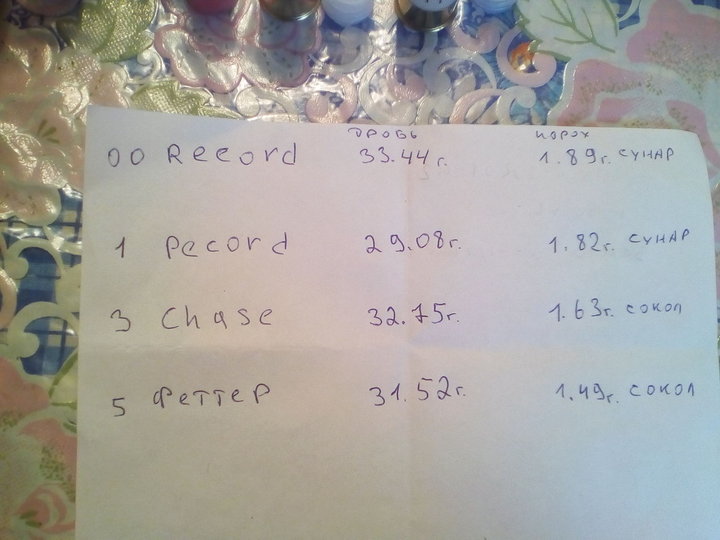 дробь порох
00 Record 33.44г. 1.89г. сунар
1 Record 29.08г. 1.82г. сунар
3 Chase 32.75г. 1.63г. сокол
5 Феттер 31.52г. 1.49г. сокол